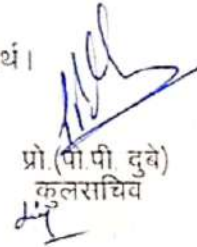 थं।
प्रो.(पी.पी. दुबे)
कुलसचिव